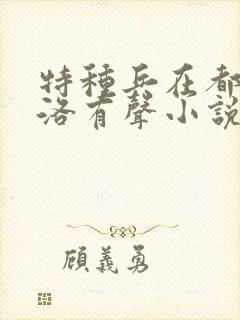 特種兵在都
洛有聲小說
顧義勇